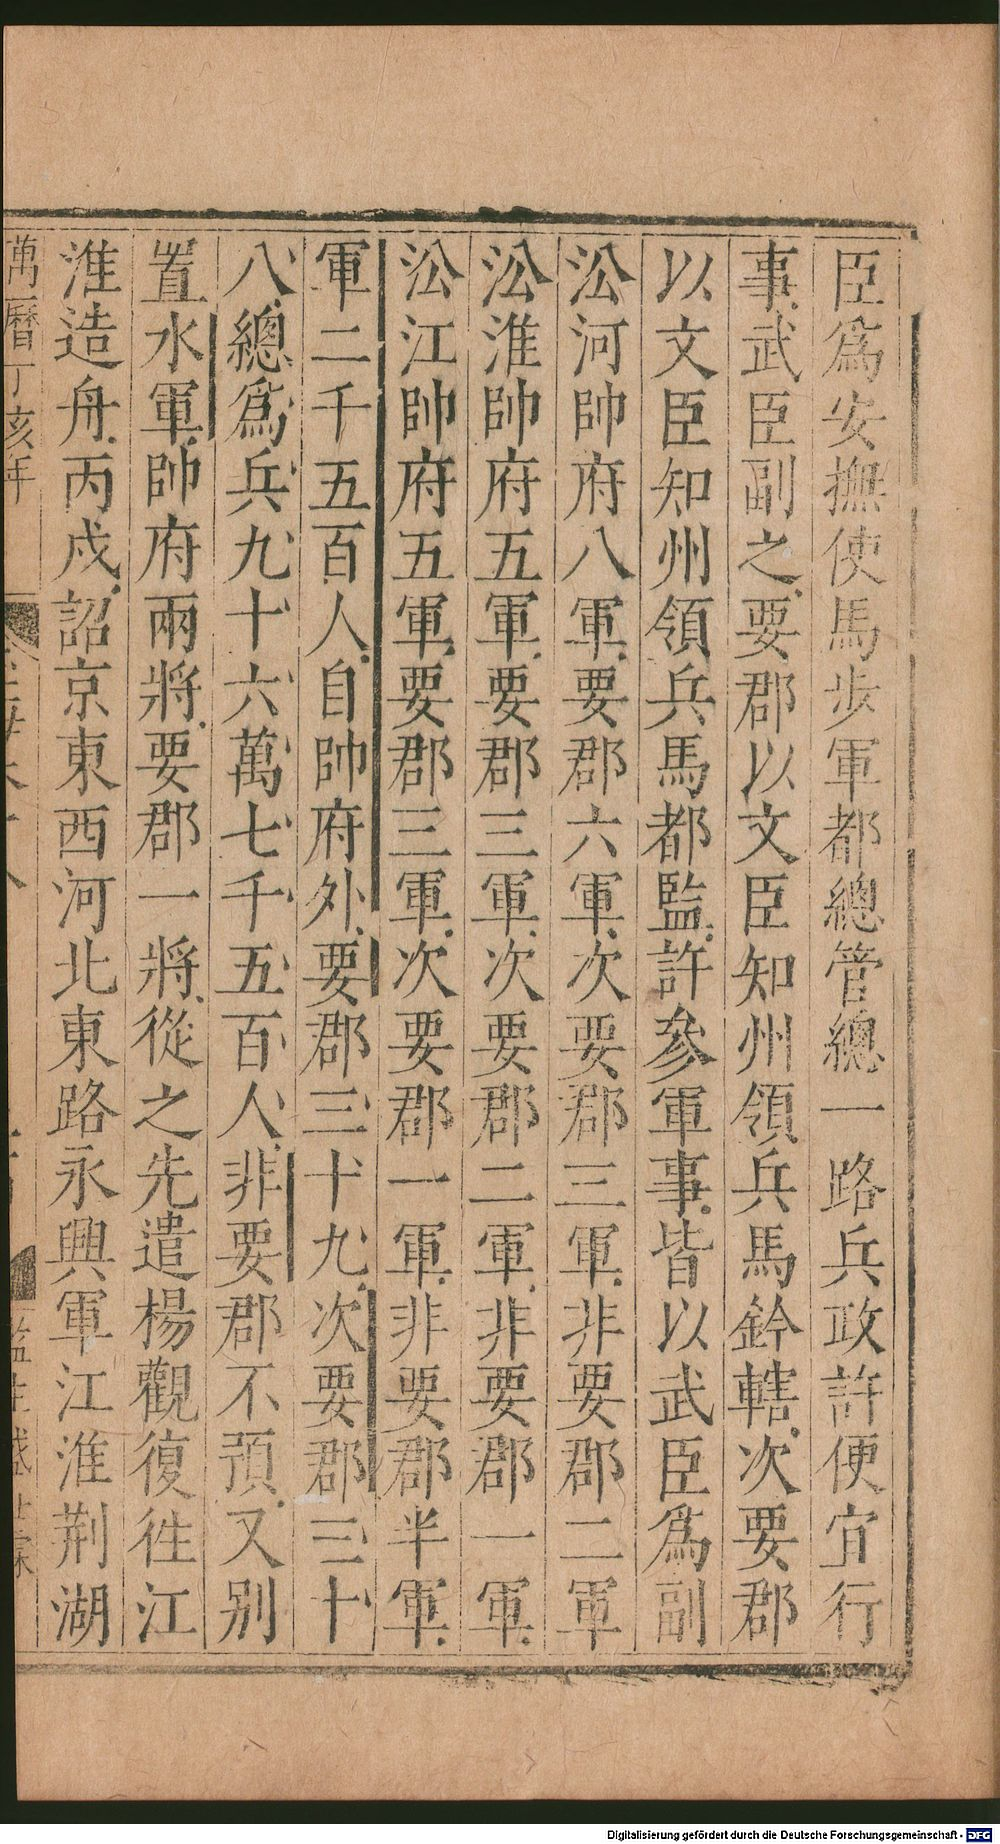 臣爲安撫使馬步軍都總管總一路兵政許便宜行
事武臣副之要郡以文臣知州領兵馬鈐轄次要郡
以文臣知州領兵馬都監許參軍事皆以武臣爲副
㳂河帥府八軍要郡六軍次要郡三軍非要郡二軍
㳂淮帥府五軍要郡三軍次要郡二軍非要郡一軍
㳂江帥府五軍要郡三軍次要郡一軍非要郡半軍
軍二千五百人自帥府外要郡三十九次要郡三十
八總爲兵九十六萬七千五百人非要郡不預又别
置水軍帥府兩將要郡一將從之先遣楊觀復徃江
淮造舟丙戍詔京東西河北東路永興軍江淮荆湖
萬曆丁亥年
Digitalisierung gefördert durch die Deutsche Forschungsgemeinschaft - DFG